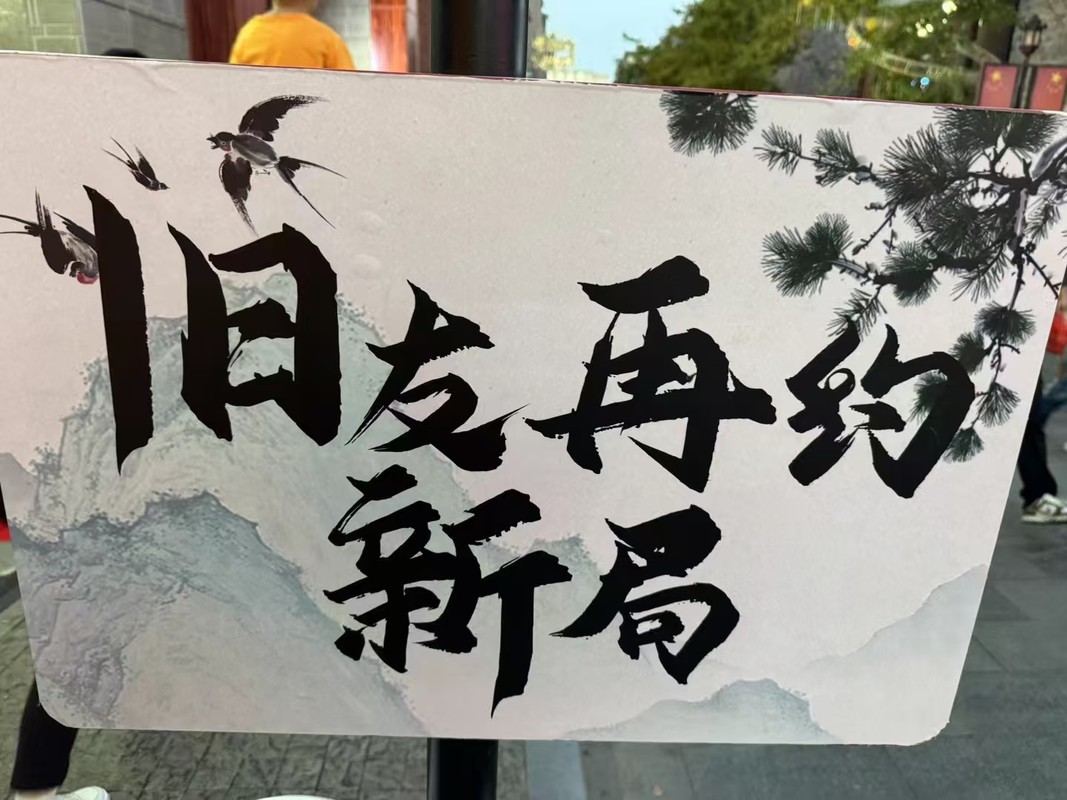 旧友再约
新局